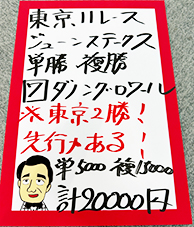 東京11レース
ジューンステークス
単勝 複勝
7 ダノンクロワール
※東京2勝!
先行力ある!
単5000 複15000
計20000円